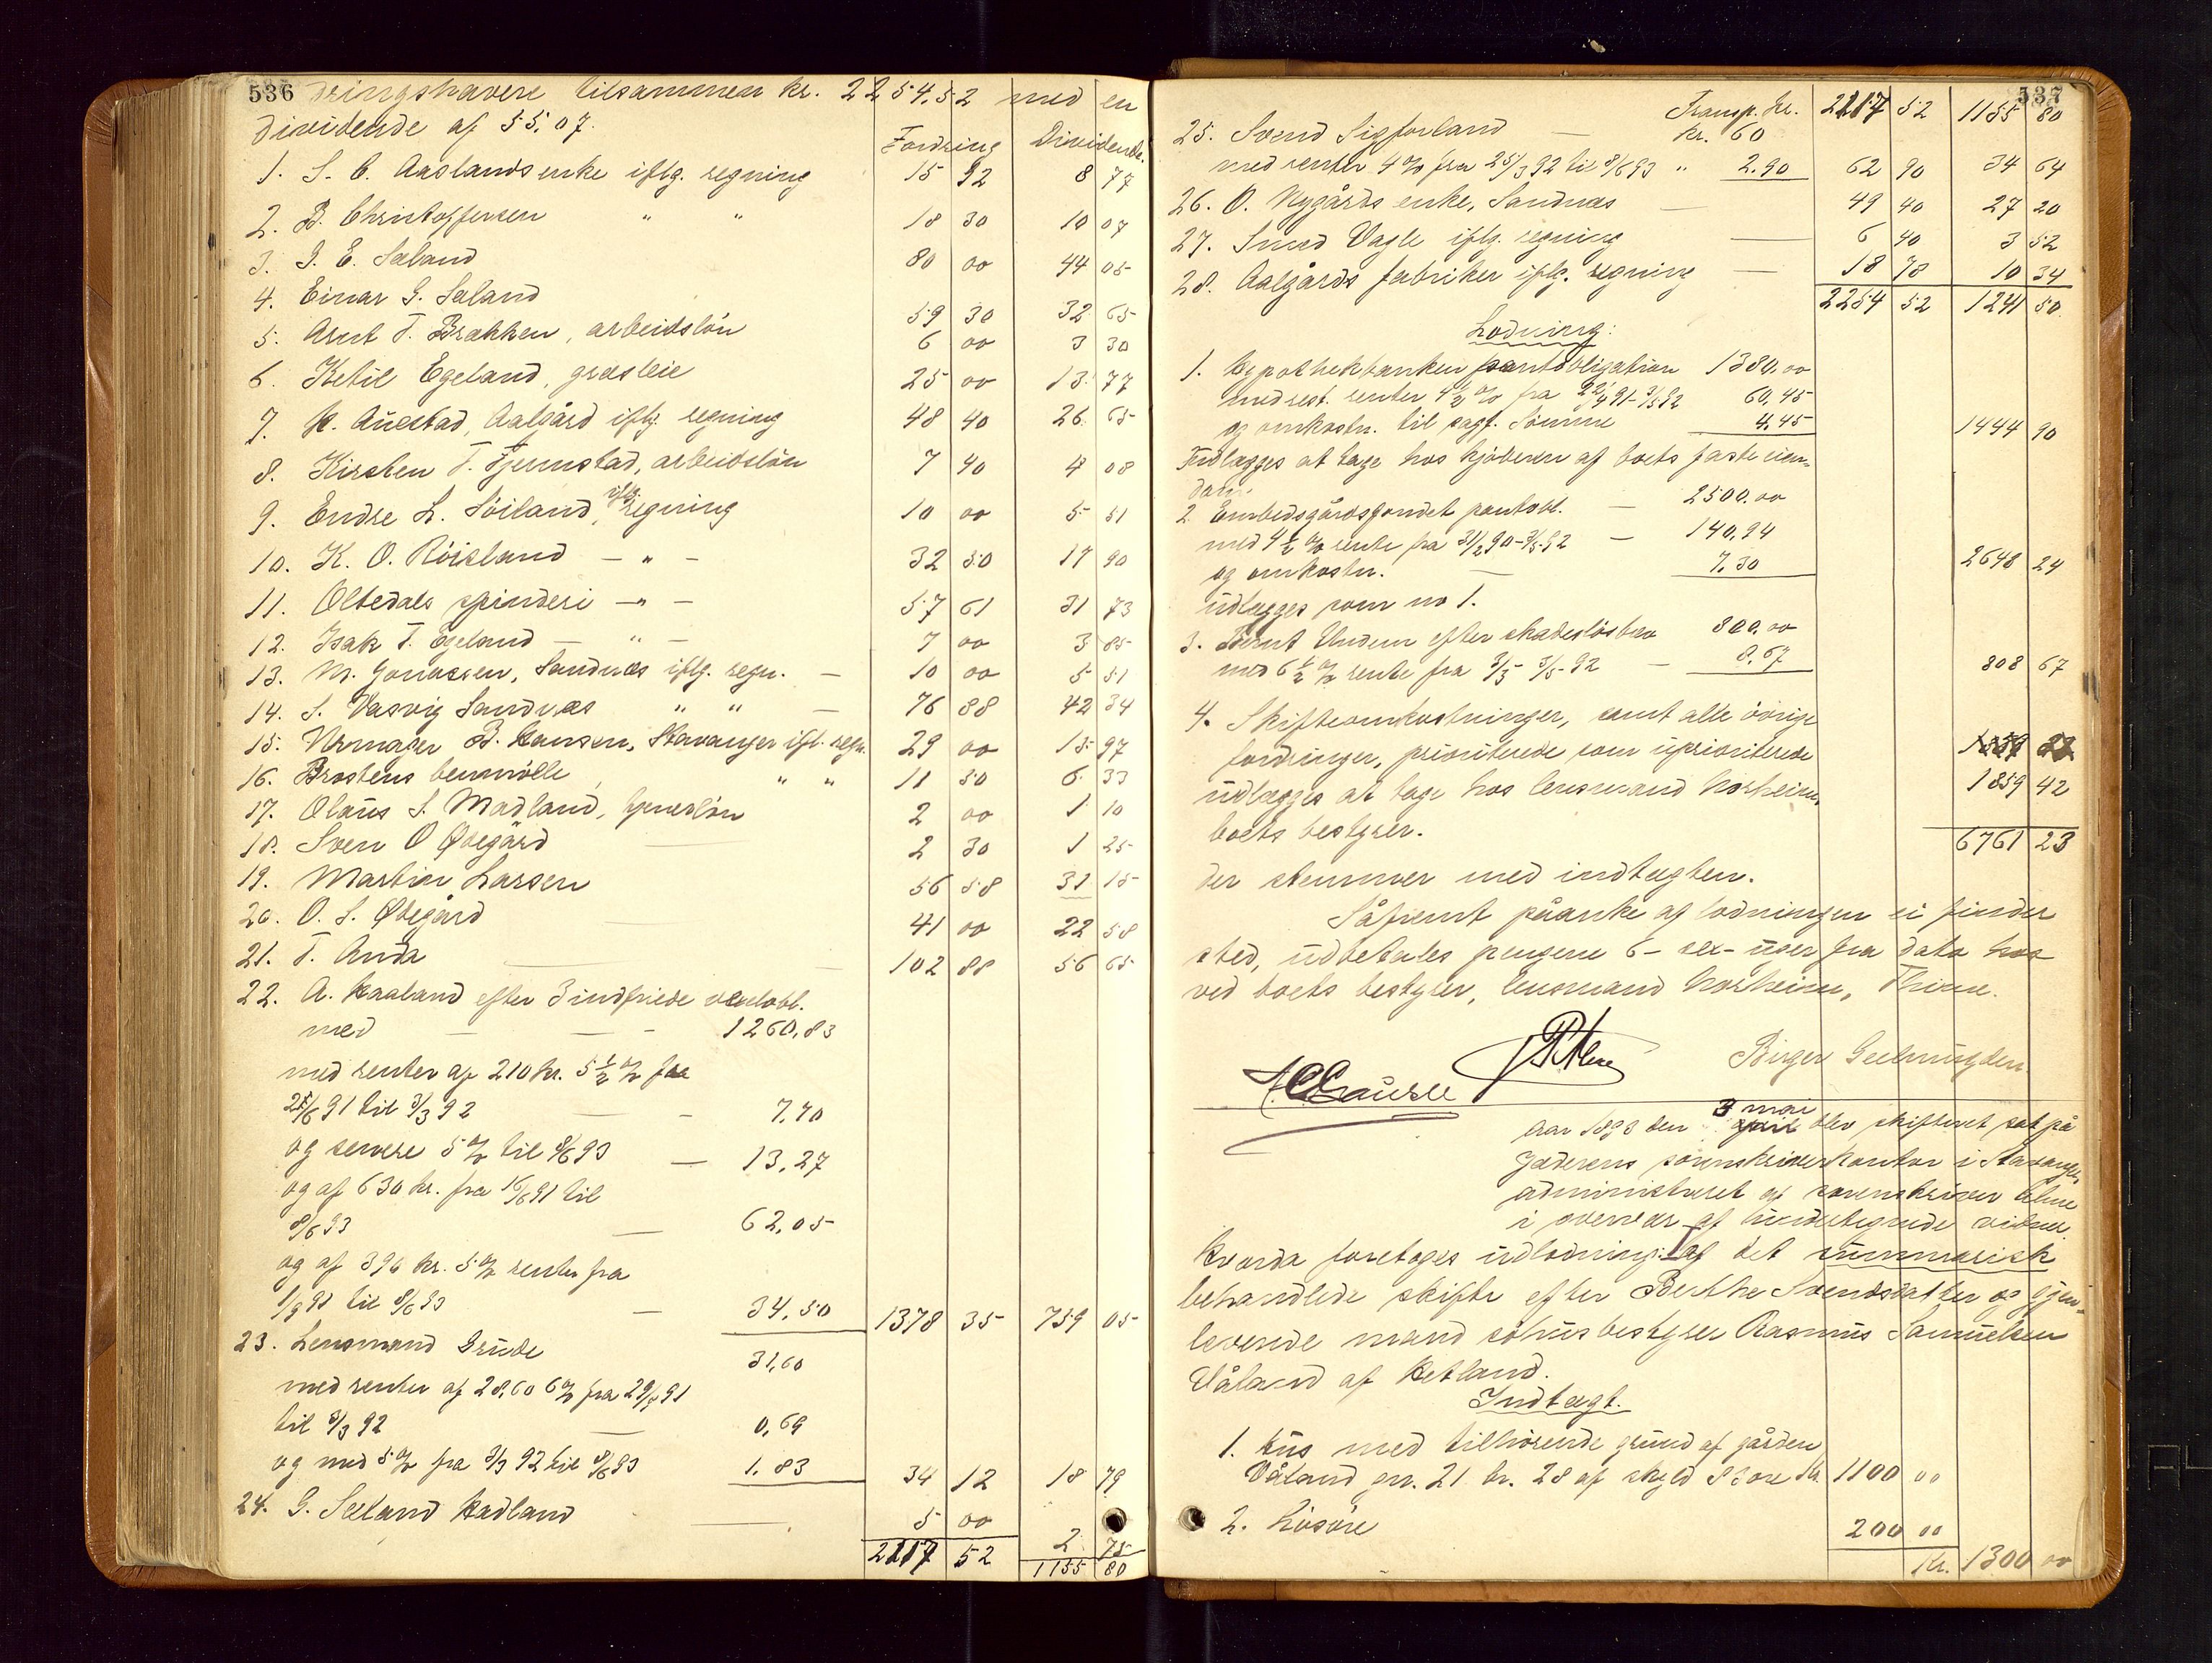 536 dringshavere tilsammen kr. 2254.52 med en
dividende af 55,07.
Fordring Dividende.
1. S. C. Aaslands enke iflg. regning 15 92 8 77
2. B. Christoffersen " " 18 30 10 07
3. I. E. Sæland 80 00 44 05
4. Einar G. Sæland 59 30 32 65
5. Arnt T. Brækken, arbeidsløn 6 00 3 30
6. Ketil Egeland, græsleie 25 00 13 77
7. K. Auestad, Aalgård iflg. regning 48 40 26 65
8. Kirsten T. Tjemstad, arbeidsløn 7 40 4 08
9. Endre L. Söiland, iflg. regning 10 00 5 51
10. K. O. Röisland — " — 32 50 17 90
11. Oltedals spinderi — " — 57 61 31 73
12. Isak T. Egeland — " — 7 00 3 85
13. M. Jonassen, Sandnæs iflg. regn. — 10 00 5 51
14. S. Vasvig Sandnæs " " — 76 88 42 34
15. Urmager B. Hansen, Stavanger ifl. regn. 29 00 15 97
16. Brostens benmölle " " 11 50 6 33
17. Olaus S. Madland, tjenestløn 2 00 1 10
18. Sven O Ødegård 2 30 1 25
19. Martin Larsen 56 58 31 15
20. O. S. Ødegård 41 00 22 58
21. T. Anda 102 88 56 65
22. A. Haaland efter 3 indfriede vexelobl.
med — — - 1260,83
med renter af 210 kr. 5½ % fra
25/6 91 til 3/3 92 — - 7.70
og senere 5 % til 8/6 93 — 13,27
og af 630 kr. fra 16/6 91 til
8/6 93 — 62,05
og af 396 kr. 5 % renter fra
1/9 91 til 8/6 93 — 34,50 1378 35 759 05
23. Lensmand Grude 31,60
med renter af 28,60 6 % fra 29/9 91
til 3/3 92 — 0,69
og med 5 % fra 3/3 92 til 8/6 93 1.83 34 12 18 79
24. G. Sæland Hadland 5 00 2 75
2117 52 1155 80
537
Transp. kr. 2117 52 1155 80
25. Svend Sigforland — kr. 60
med renter 4 % fra 25/3 92 til 8/6 93 " 2.90 62 90 34 64
26. O. Nygårds enke, Sandnæs — 49 40 27 20
27. Smed Vagle iflg. regning — 6 40 3 52
28. Aalgårds fabriker iflg. regning — 18 78 10 34
2254 52 1241 50
Lodning:
1. Hypothekbanken pantobligation 1380,00
med rest. renter 4½ % fra 22/4 91 - 3/5 92 60,45
og omkostn. til sagf. Sömme 4,45 1444 90
Udlægges at tage hos kjöberen af boets faste eien-
dom.
2. Embedsgårdsfondet pantobl. — 2500.00
med 4½ % rente fra 31/2 90 - 3/5 92 — 140,94
og omkostn. — 7,30 2648 24
udlægges som no 1.
3. Bernt Undem efter skadeslösbrev 800,00
med 6½ % rente fra 3/3 - 3/5 92 — 8,67 808 67
4. Skifteomkostninger, samt alle övrige
fordringer, prioriterede som uprioriterede
udlægges at tage hos lensmand Norheim, 1859 42
boets bestyrer. 6761 23
der stemmer med indtægten.
Såfremt påanke af lodningen ei finder
sted, udbetales pengene 6 - sex - uger fra dato hos
ved boets bestyrer, lensmand Norheim, Thime.
Birger Gudmundsen
Aar 1893 den 3 mai blev skifteret sat på
Jæderens sorenskriverkontor i Stavanger,
administreret af sorenskriver
i overvær af undertegnede vidner.
Hvorda foretoges udlodning af det summarisk
behandlede skifte efter Berthe Svendsdatter og gjen-
levende mand sölusbestyrer Rasmus Samuelsen
Våland af Hetland.
Indtægt.
1. Hus med tilhörende grund af gården
Våland gnr. 21 br. 28 af skyld 8 öre kr. 1100 00
2. Lösöre 200 00
Kr. 1300 00